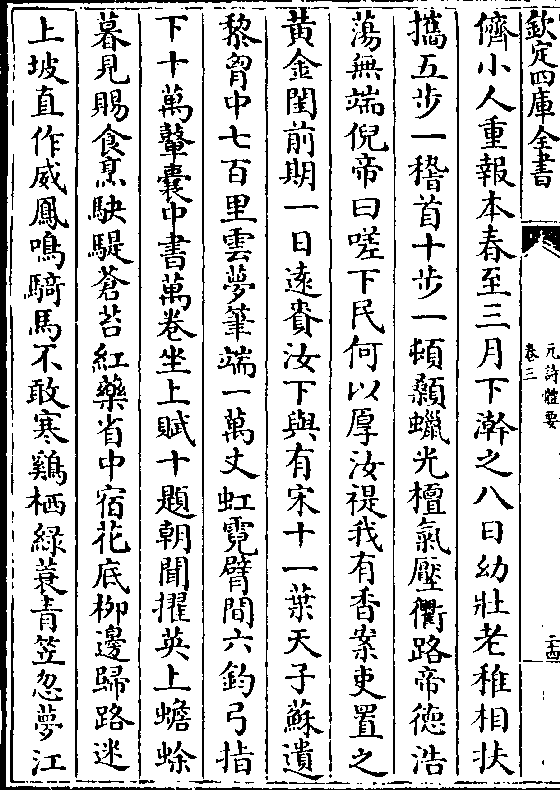 欽定四庫全書
元詩體要
卷三
儕小人重報本春至三月下澣之八日幼壯老稚相扶
攜五步一稽首十步一頓顙蠟光檀氣壓衢路帝德浩
蕩無端倪帝曰嗟下民何以厚汝禔我有香案吏置之
黃金閨前期一日遠賚汝下與有宋十一葉天子蘇遺
黎胷中七百里雲夢筆端一萬丈虹霓臂間六鈞弓指
下十萬鼙囊中書萬卷坐上賦十題朝聞擢英上蟾蜍
暮見賜食烹駃騠蒼苔紅藥省中宿花底柳邊歸路迷
上坡直作威鳳鳴騎馬不敢寒鷄栖綠蓑青笠忽夢江